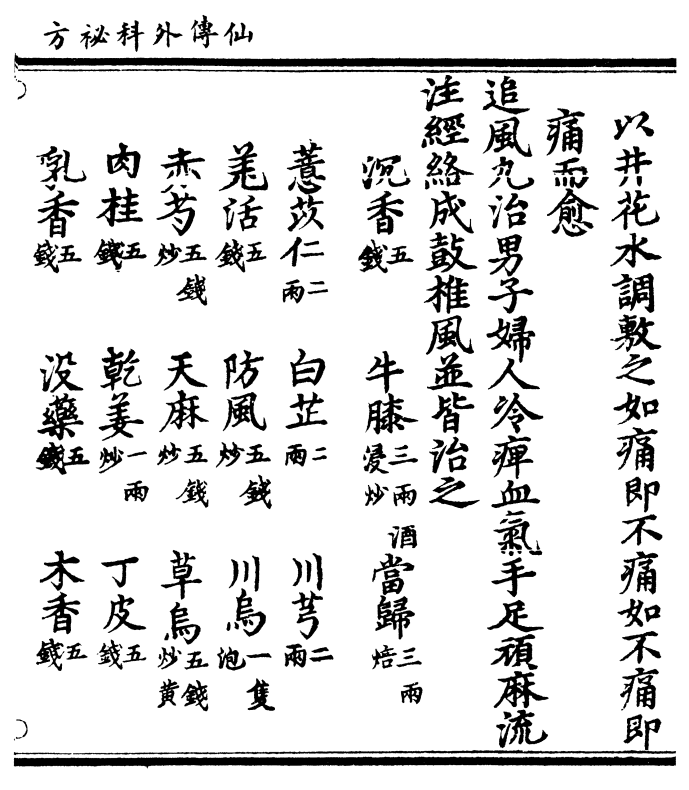 仙傳外科祕方
以井花水調敷之如痛即不痛如不痛即
痛而愈
追風丸治男子婦人冷痺血氣手足頑麻流
注經絡成鼓椎風並皆治之
沉香五錢 牛膝三兩酒浸炒 當歸三兩焙
薏苡仁二兩 白芷二兩 川芎二兩
羌活五錢 防風五錢炒 川烏一隻泡
赤芍五錢炒 天麻五錢炒 草烏五錢炒黃
肉桂五錢 乾姜一兩炒 丁皮五錢
乳香五錢 没藥五錢 木香五錢